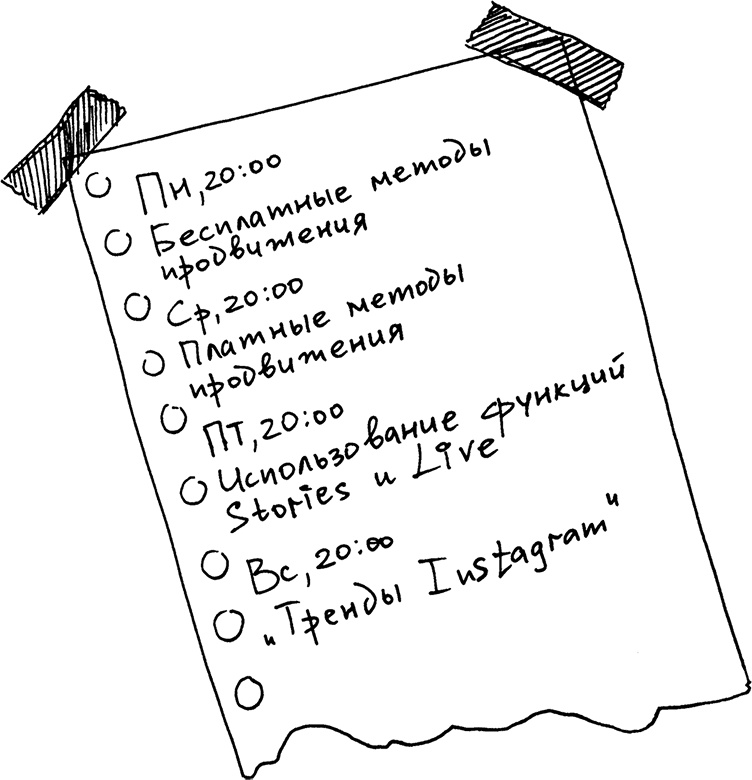 Пн, 20:00
Бесплатные методы
продвижения
Ср, 20:00
Платные методы
продвижения
Пт, 20:00
Использование функций
Stories и Live
Вс, 20:00
„Тренды Instagram"